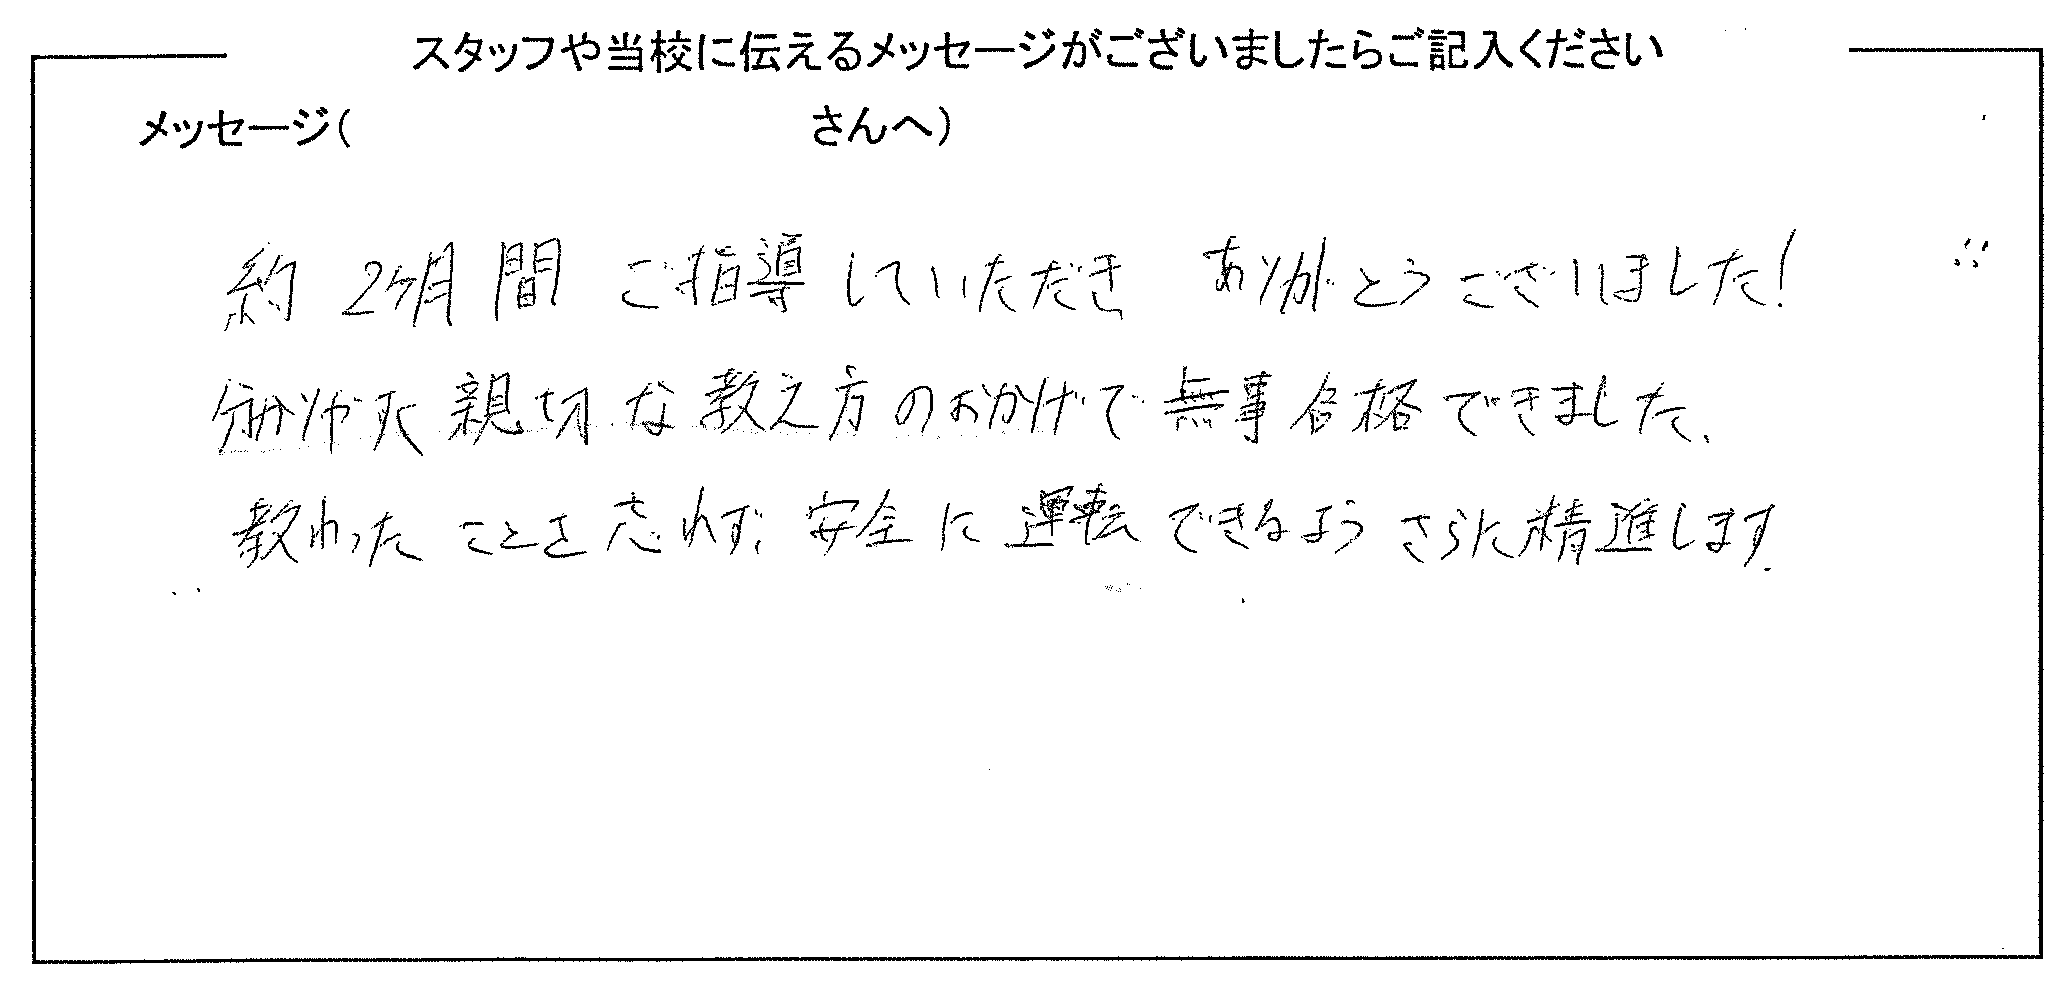 スタッフや当校に伝えるメッセージがございましたらご記入ください
メッセージ( さんへ)
約2ヶ月間 ご指導していただき ありがとうございました!
分かりやすく親切な教え方のおかげで無事合格できました。
教わったことを忘れず、安全に運転できるようさらに精進します。